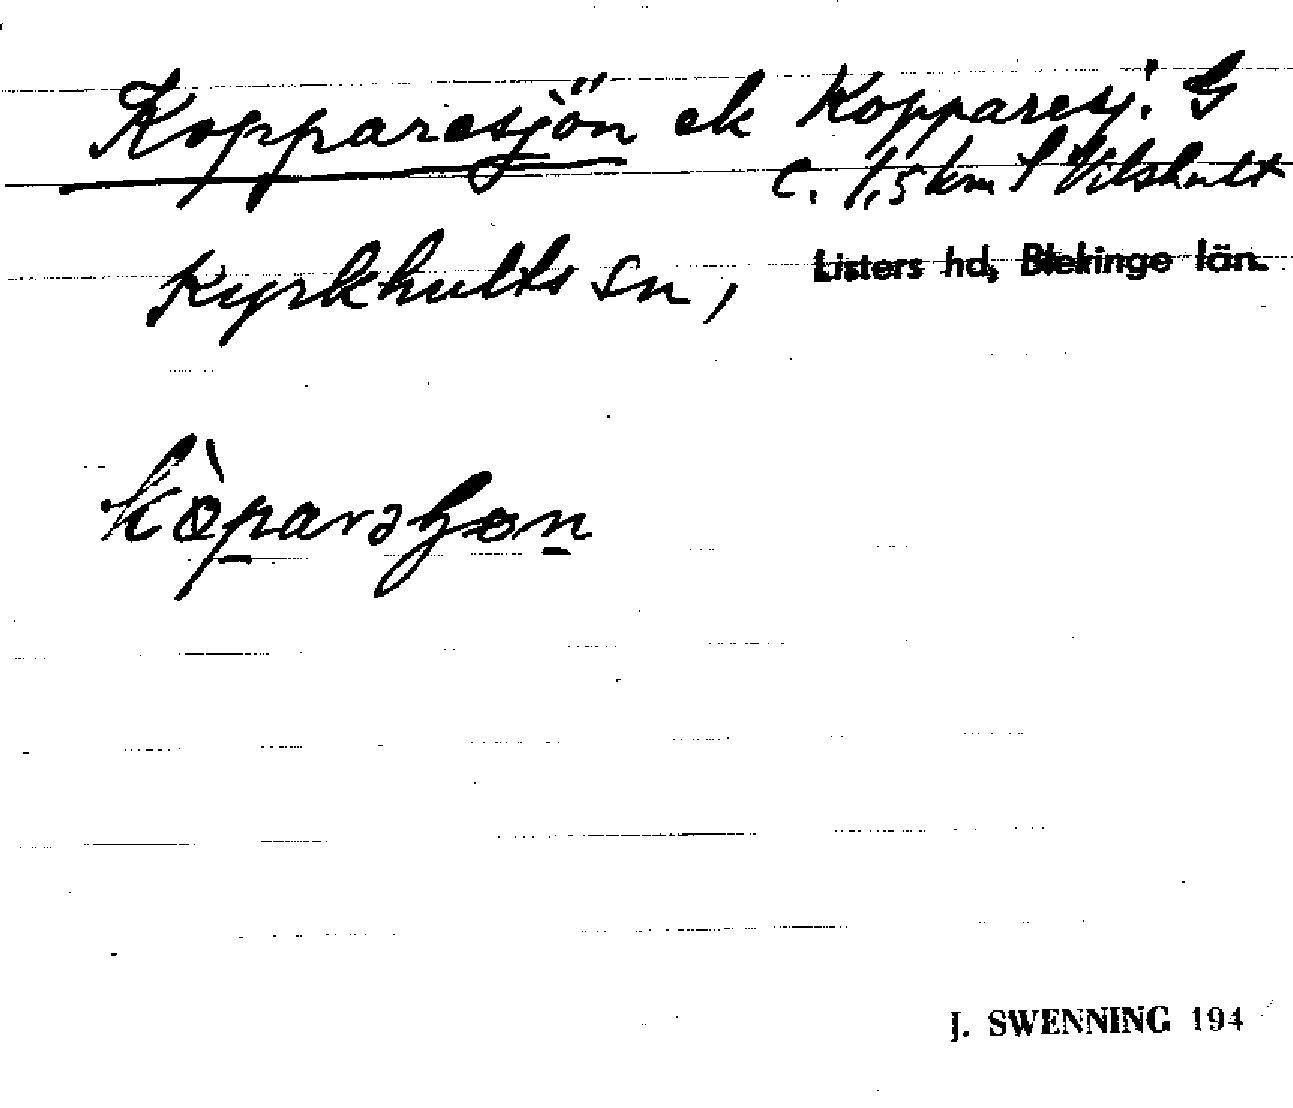 Kopparesjön ek Kopparesj. G
c. 1,5 km f Vilshult
Kyrkhults sn, Listers hd, Blekinge län.
J. SWENNING 194